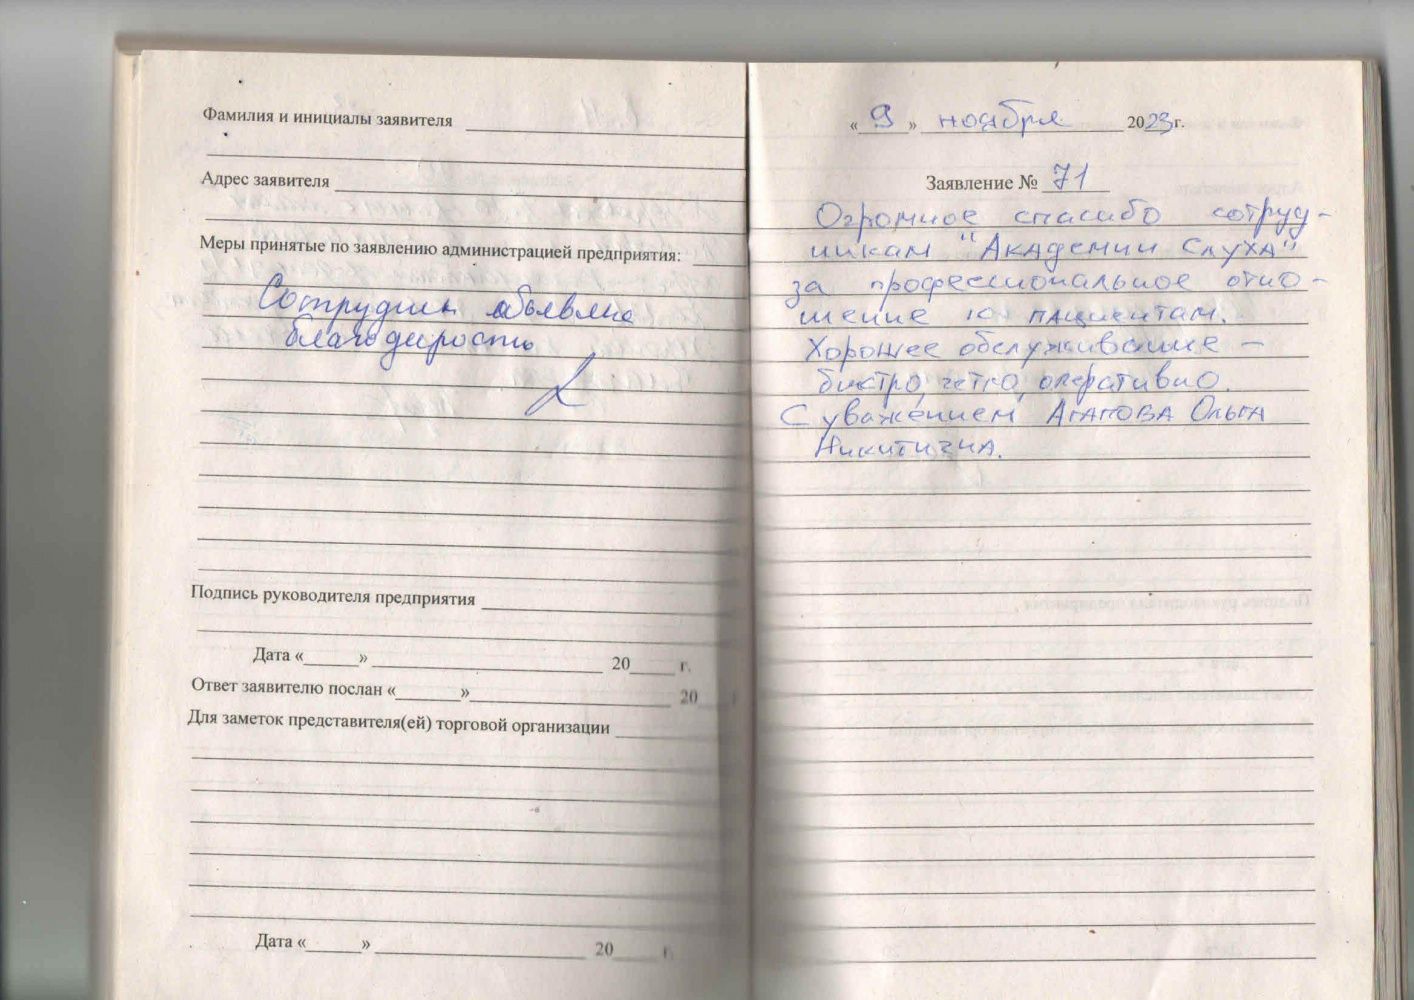 Фамилия и инициалы заявителя
Адрес заявителя
Меры принятые по заявлению администрацией предприятия:
Сотрудник объявлена
благодарность
Подпись руководителя предприятия
Дата « » 20 г.
Ответ заявителю послан « » 20
Для заметок представителя(ей) торговой организации
Дата « » 20 г.
« 9 » ноября 2023 г.
Заявление № 71
Огромное спасибо сотруд-
никам "Академии Слуха"
за профессиональное отно-
шение к пациентам.
Хорошее обслуживание –
быстро, четко, оперативно.
С уважением, Агапова Ольга
Никитична.